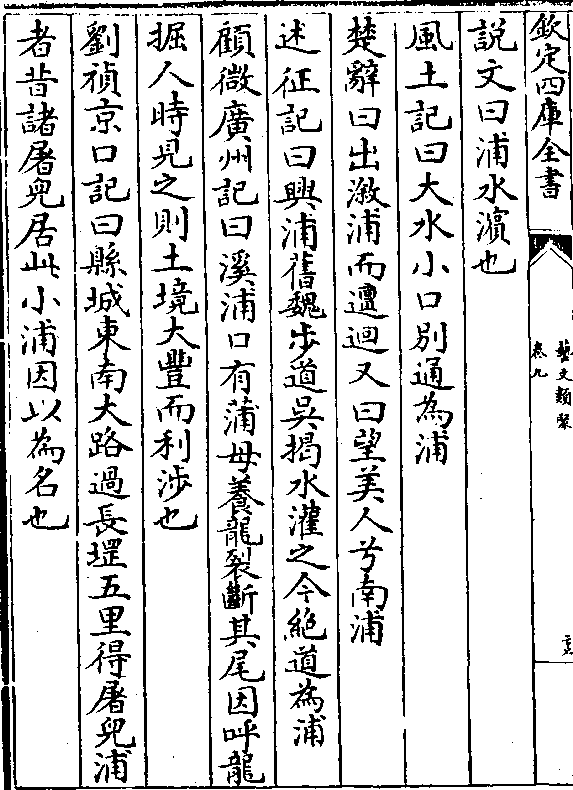 欽定四庫全書
藝文類聚
卷九
說文曰浦水濵也
風土記曰大水小口别通為浦
楚辭曰出溆浦而邅迴又曰望美人兮南浦
述征記曰興浦舊魏步道吳揭水灌之今絶道為浦
顧微廣州記曰溪浦口有蒲母養龍裂斷其尾因呼龍
掘人時見之則土境大豐而利涉也
劉禎京口記曰縣城東南大路過長堽五里得屠兒浦
者昔諸屠兒居此小浦因以為名也